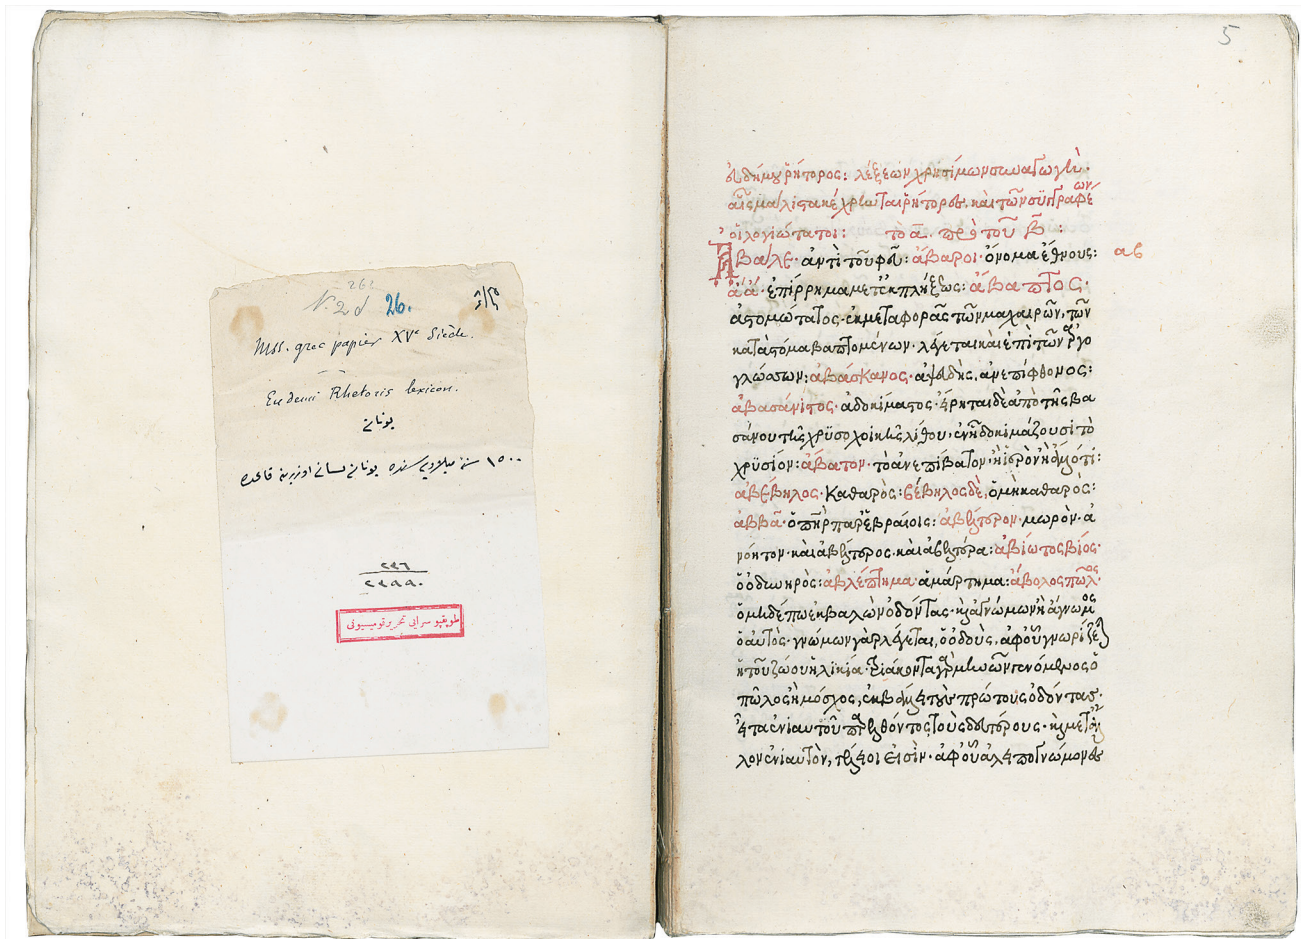 26.
N. 2 d 26.
Mss. grec papier XVe Siècle.
Eudemi Rhetoris lexicon.
يونانى
١٥٠٠ سنهٔ ميلاديه سنده يونانى لسانى اوزرينه قاعده
٢٤٦
٢٤٩٩٠
طوپقپو سرايى تحرير قوميسيونى
5
εὐδήμου ῥήτορος: λέξεων χρησίμων συναγωγὴ·
αἷς μάλιστα κέχρηνται ῥήτορές, καὶ τῶν συγγραφέων
οἱ λογιώτατοι: τὸ α. πρὸ τοῦ β:
Ἄβαλε· ἀντὶ τοῦ φεῦ: ἄβαροι· ὄνομα ἔθνους: αβ
ἀά· ἐπίρρημα μετ' ἐκπλήξεως: ἄβαπτος·
ἀστομώτατος· ἐκ μεταφορᾶς τῶν μαχαιρῶν, τῶν
κατὰ στόμα βαπτομένων· λέγεται καὶ ἐπὶ τῶν
γλώσσων: ἀβάσκανος· ἀψευδὴς, ἀνεπίφθονος:
ἀβασάνιστος· ἀδοκίματος· εἴρηται δὲ ἀπὸ τῆς βα
σάνου τῆς χρυσοχοϊκῆς λίθου, ἐν ᾗ δοκιμάζουσι τὸ
χρυσίον: ἄβατον· τὸ ἀνεπίβατον· ἢ ἱερὸν ἢ
ἀβέβηλος· καθαρὸς: βέβηλος δὲ, ὁ μὴ καθαρὸς:
ἀββᾶ· ὁ πατὴρ παρ' ἑβραίοις: ἀβέλτερον· μωρὸν· ἀ
νόητον· καὶ ἀβέλτερος· καὶ ἀβελτέρα: ἀβίωτος βίος·
ὁ ὀδυνηρὸς: ἀβλέπτημα· ἁμάρτημα: ἄβολος πῶλος·
ὁ μηδέπω ἐκβαλὼν ὀδόντας· ἢ ἀγνώμων ἢ ἄγνωμος
ὁ αὐτὸς· γνώμων γὰρ λέγεται, ὁ ὀδοὺς, ἀφ' οὗ γνωρίζεται
ἡ τοῦ ζώου ἡλικία· τριάκοντα γὰρ μηνῶν γενόμενος ὁ
πῶλος ἢ μόσχος, ἐκβάλλει τοὺς πρώτους ὀδόντας·
εἶτα ἐνιαυτοῦ παρελθόντος τοὺς δευτέρους· καὶ μετ' ἄλ
λον ἐνιαυτὸν, τέλειοι εἰσὶν· ἀφ' οὗ